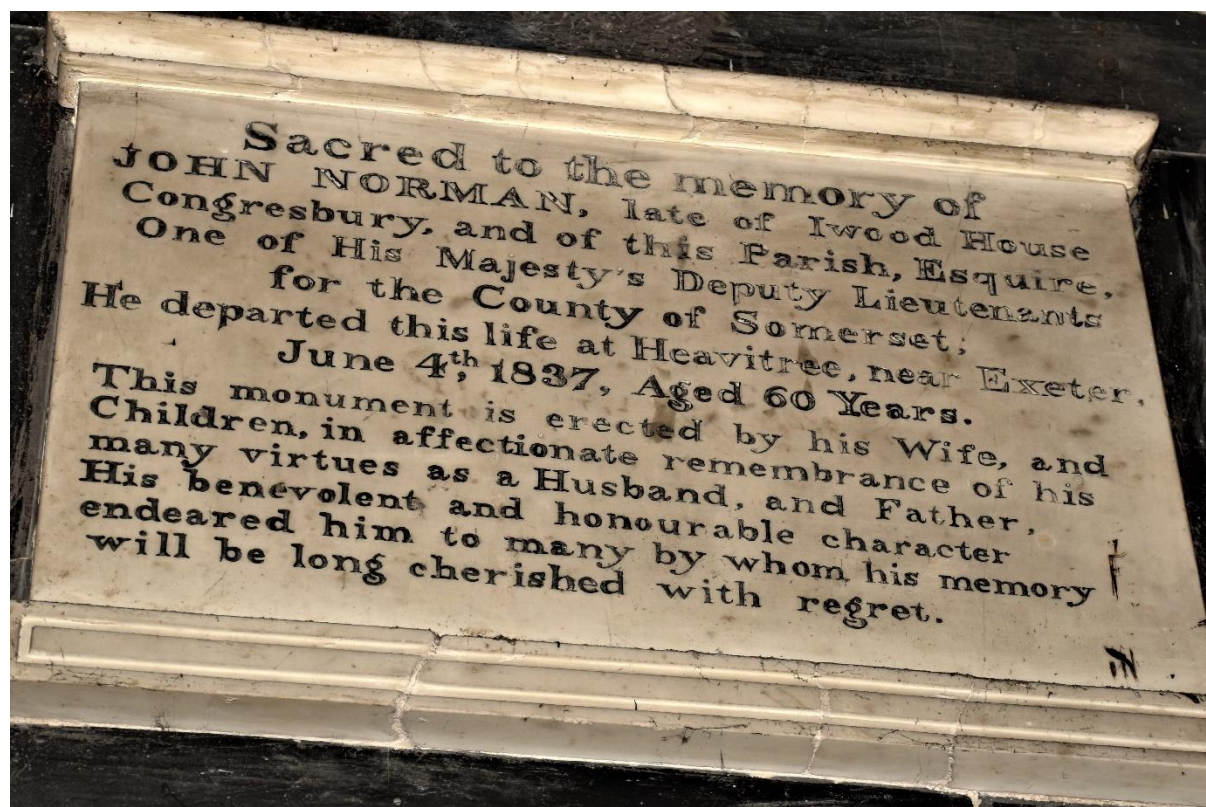 Sacred to the memory of
JOHN NORMAN, late of Iwood House
Congresbury, and of this Parish, Esquire,
One of His Majesty's Deputy Lieutenants
for the County of Somerset;
He departed this life at Heavitree, near Exeter,
June 4th, 1837, Aged 60 Years.
This monument is erected by his Wife, and
Children, in affectionate remembrance of his
many virtues as a Husband, and Father,
His benevolent and honourable character
endeared him to many by whom his memory
will be long cherished with regret.